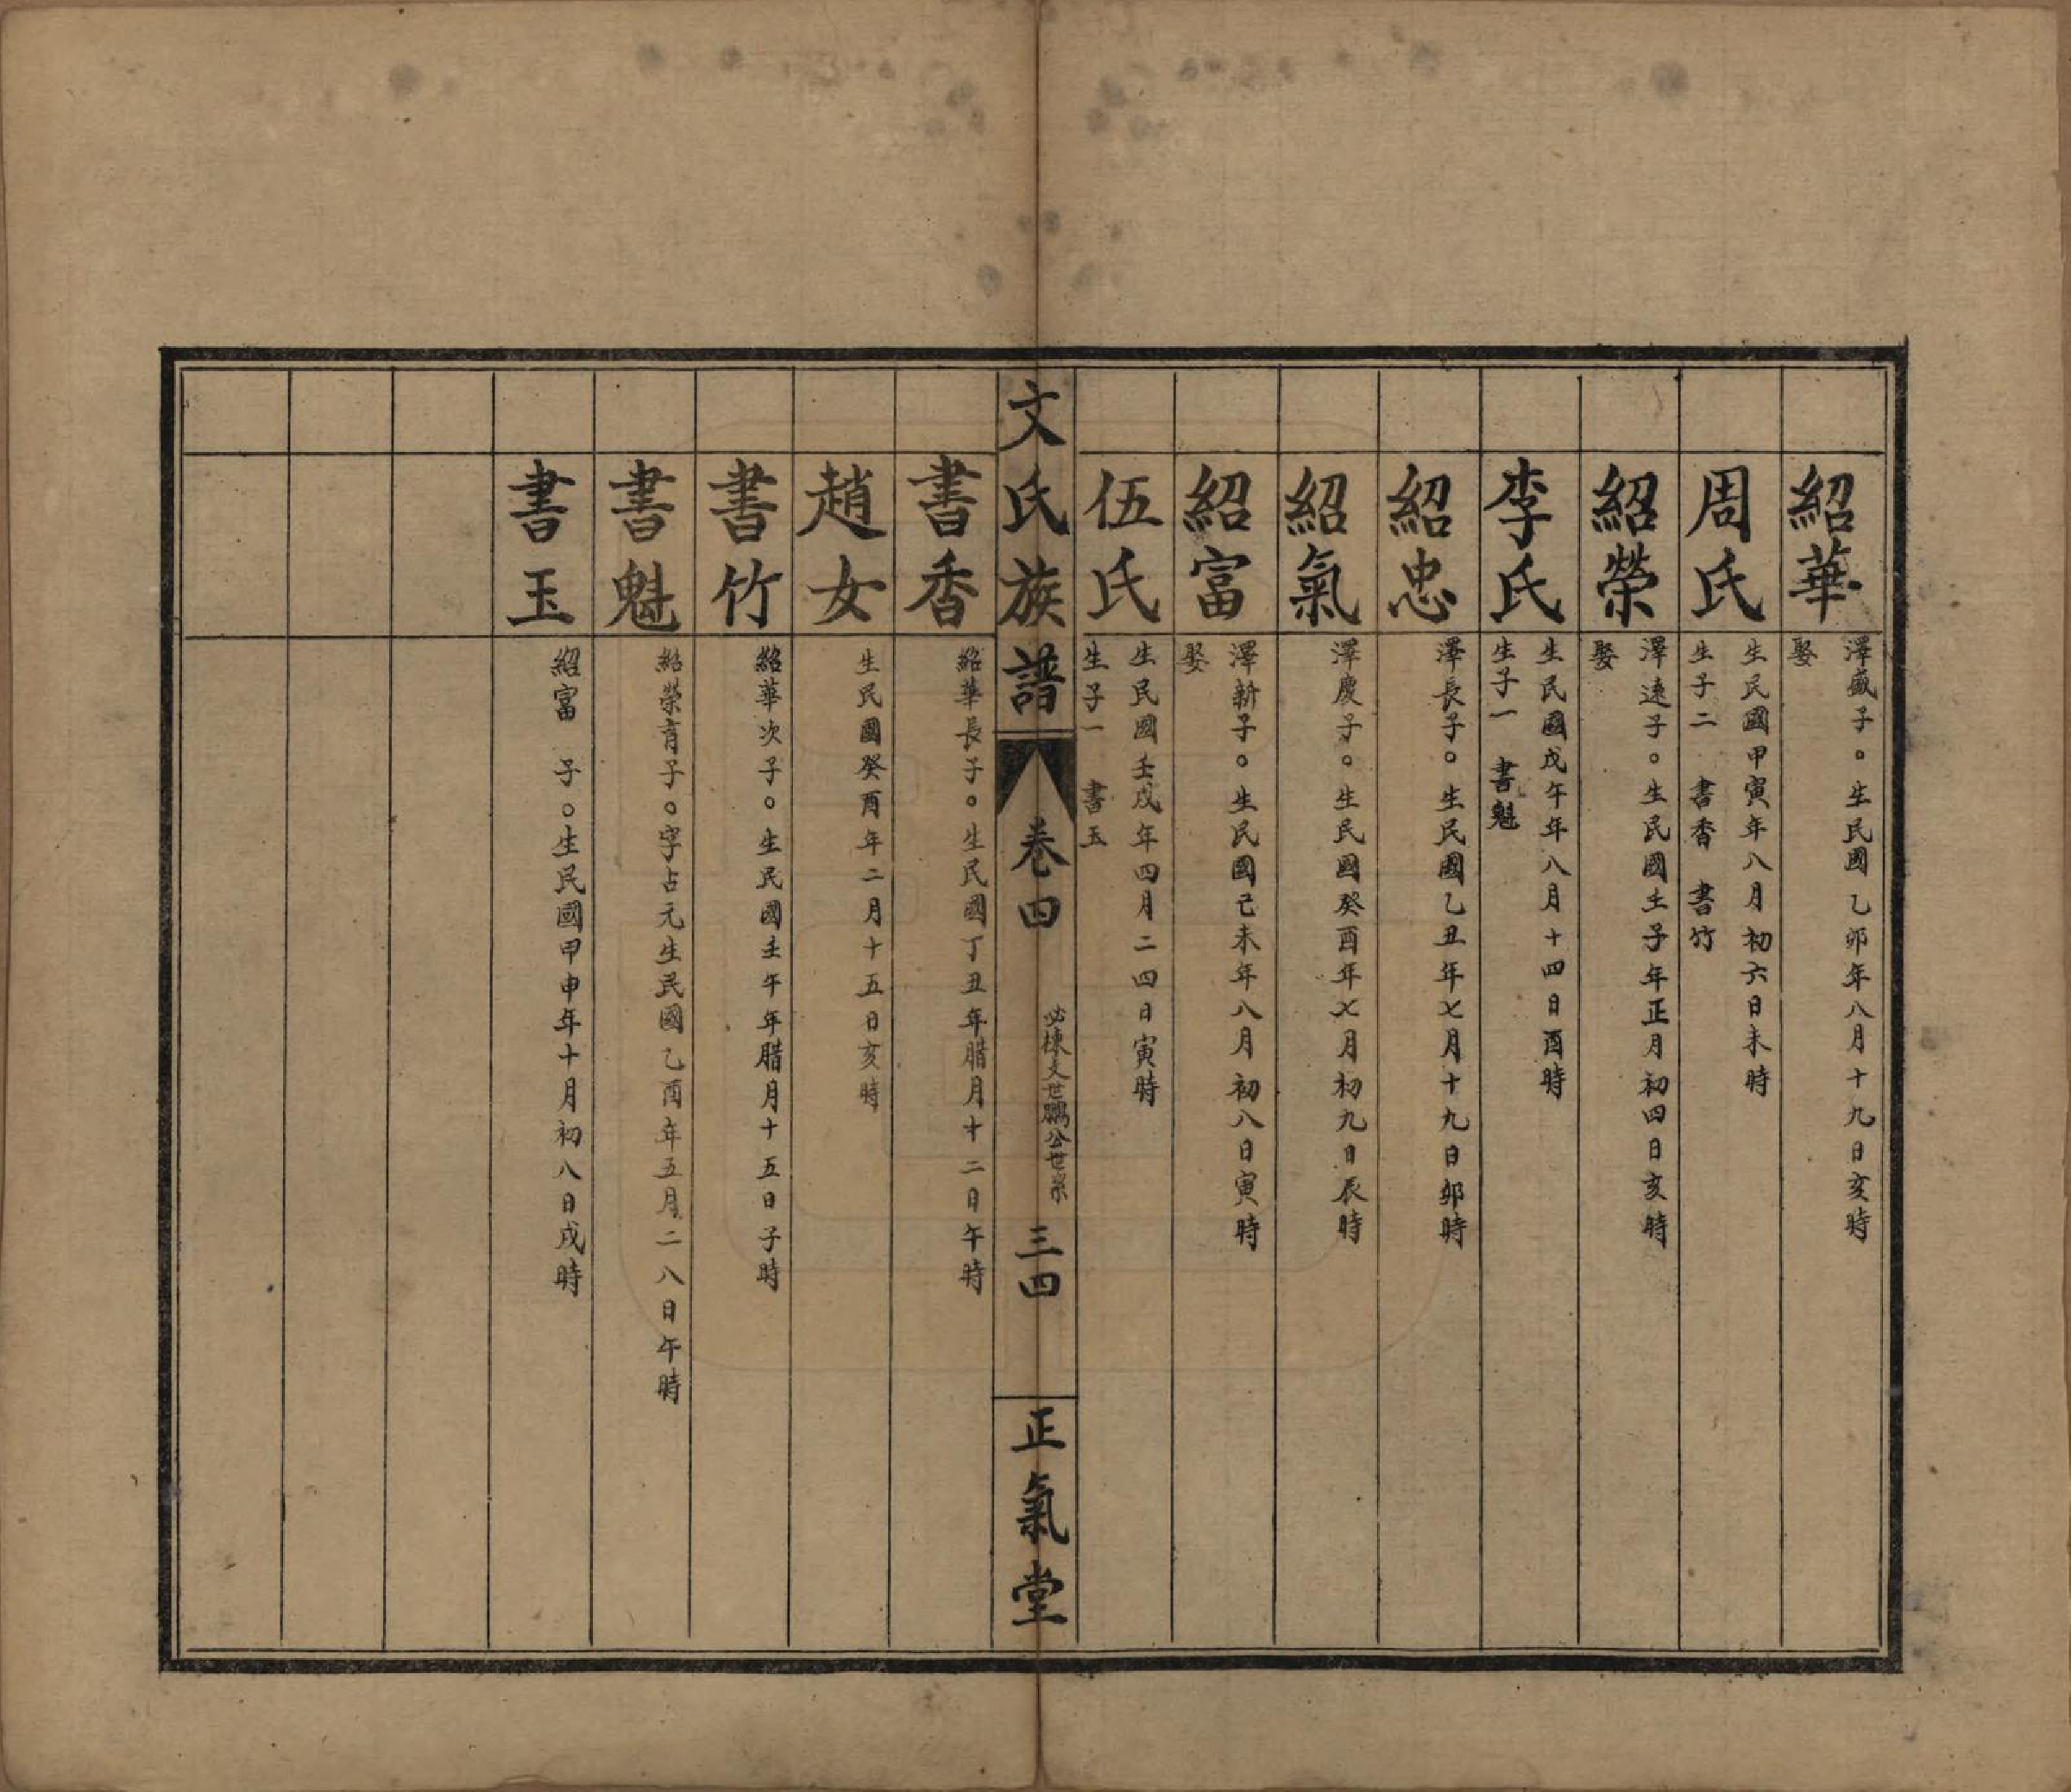 紹華
澤盛子。生民國乙卯年八月十九日亥時
娶
周氏
生民國甲寅年八月初六日未時
生子二 書香 書竹
紹榮
澤遠子。生民國壬子年正月初四日亥時
娶
李氏
生民國戊午年八月十四日酉時
生子一 書魁
紹忠
澤長子。生民國乙丑年七月十九日卯時
紹氣
澤慶子。生民國癸酉年七月初九日辰時
紹富
澤新子。生民國己未年八月初八日寅時
娶
伍氏
生民國壬戌年四月二四日寅時
生子一 書玉
文氏族譜
卷四
必棟文世鵬公世系
三四
正氣堂
書香
紹華長子。生民國丁丑年腊月十二日午時
趙女
生民國癸酉年二月十五日亥時
書竹
紹華次子。生民國壬午年腊月十五日子時
書魁
紹榮育子。字占元生民國乙酉年五月二八日午時
書玉
紹富 子。生民國甲申年十月初八日戌時